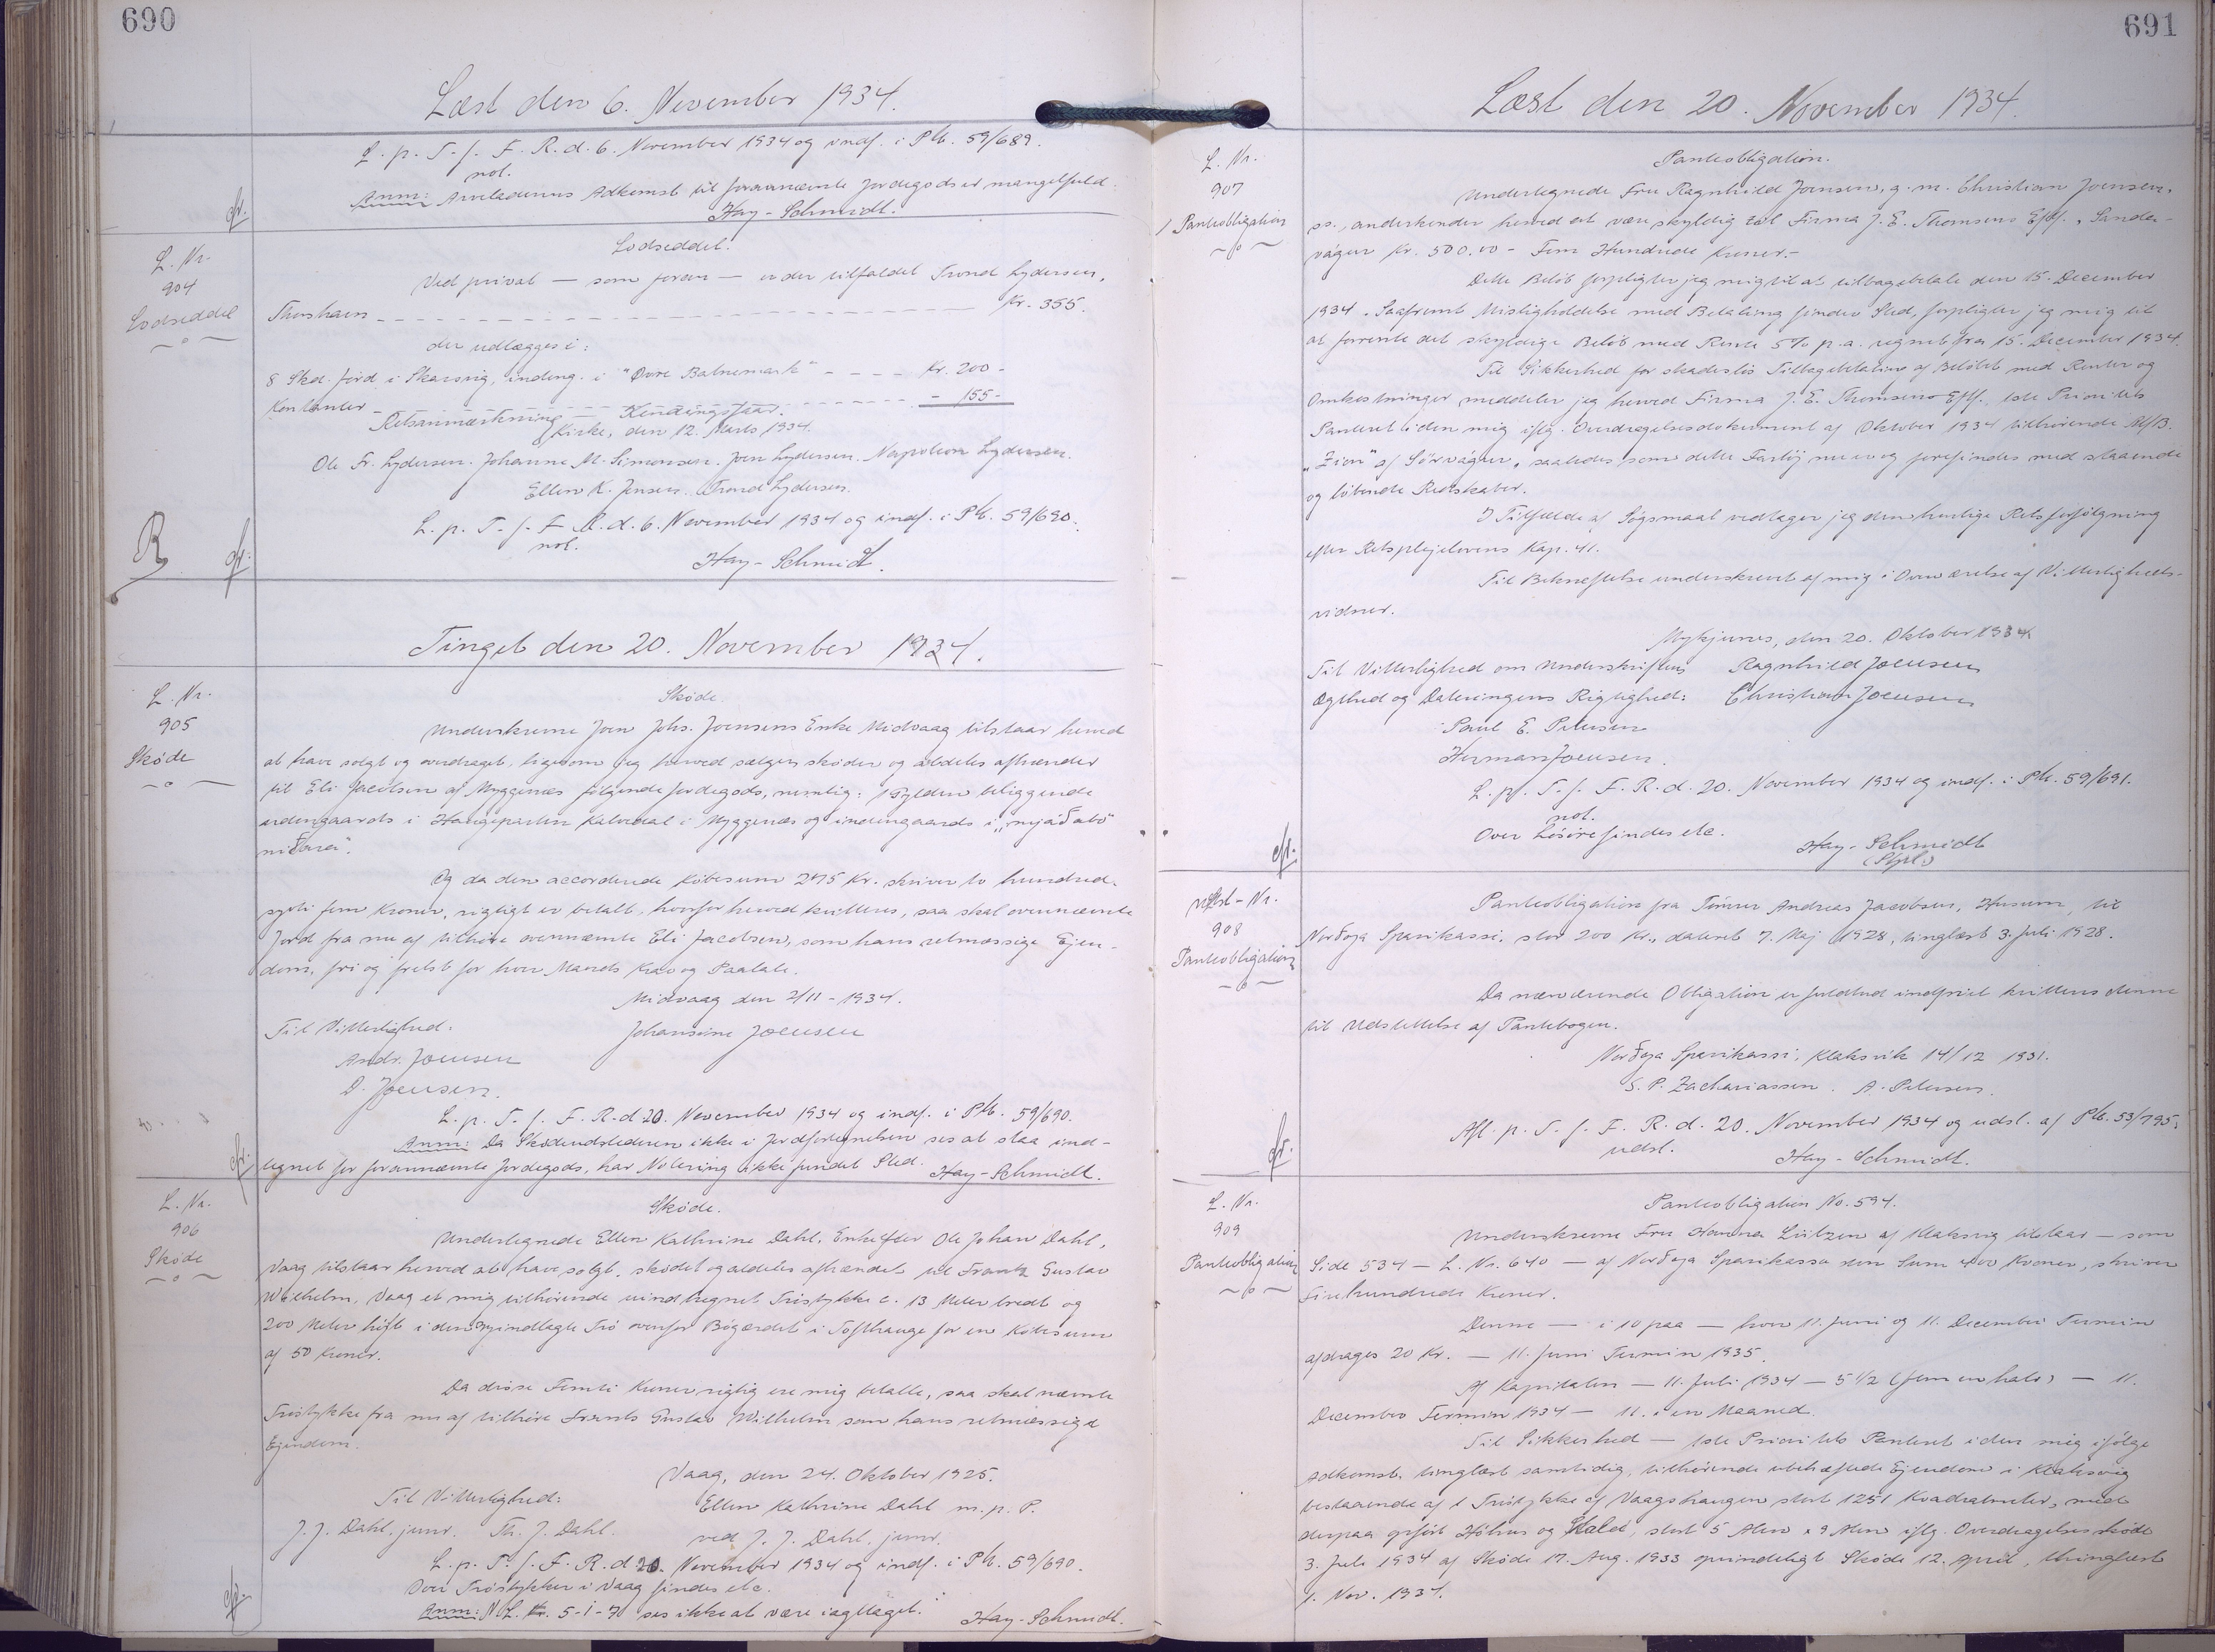 690
Læst den 6. November 1934.
L. p. T. f. F. R. d. 6. November 1934 og indf. i Ptb. 59/689.
not.
Anm: Arveladerens Adkomst til forannævnte Jordegods er mangelfuld.
Hay-Schmidt.
cfr.
L. Nr.
904
Lodseddel
Lodseddel.
Ved privat — som foran — er der tilfaldet Trond Lydersen,
Thorshavn — Kr. 355.
der udlægges i:
8 Skd. Jord i Skarvig, inding. i "Øvre Bakmark" - - - Kr. 200 -
Kontanter - - - - 155 -
Retsanmærkning Kendingsfaar.
Kirke, den 12. Marts 1934.
Ole Fr. Lydersen. Johanne M. Simonsen. Joen Lydersen. Napoleon Lydersen.
Ellen K. Jensen. Trond Lydersen.
L. p. T. f. F. R. d. 6. November 1934 og indf. i Ptb. 59/690.
not.
Hay-Schmidt.
R cfr.
Tinget den 20. November 1934.
L. Nr.
905
Skøde
Skøde.
Underskrevne Joen Johs. Joensens Enke Midvaag tilstaar herved
at have solgt og overdraget, ligesom jeg herved sælger, skøder og aldeles afhænder
til Eli Jacobsen af Myggenæs følgende Jordegods, nemlig: 1 Gylden beliggende
udengaards i Haugeparten Kalvedal i Myggenæs og indengaards i "mjáðabø
niðara".
Og da den accorderede Købesum 275 Kr. skriver to hundred-
sytti fem Kroner, rigtigt er betalt, hvorfor herved kvitteres, saa skal ovennævnte
Jord fra nu af tilhøre ovennævnte Eli Jacobsen, som hans retmæssige Ejen-
dom, fri og frelst for hver Mands Krav og Paatale.
Midvaag den 2/11 - 1934.
Til Vitterlighed. Johansine Joensen
Andr. Joensen
D. Joensen.
L. p. T. f. F. R. d. 20. November 1934 og indf. i Ptb. 59/690.
Anm: Da Skødeudstederen ikke i Jordfortegnelsen ses at staa ind-
tegnet for forannævnte Jordegods, har Notering ikke fundet Sted. Hay-Schmidt.
cfr.
L. Nr.
906
Skøde
Skøde.
Undertegnede Ellen Kathrine Dahl, Enke efter Ole Johan Dahl,
Vaag tilstaar herved at have solgt, skødet og aldeles afhændet til Frantz Gustav
Wilhelm, Vaag et mig tilhørende uindhegnet Trøstykke c. 13 Meter bredt og
200 Meter højt i den nyindlagte Trø ovenfor Bøgærdet i Tofthauge for en Købesum
af 50 Kroner.
Da disse Femti Kroner rigtig ere mig betalte, saa skal nævnte
Trøstykke fra nu af tilhøre Frants Gustav Wilhelm som hans retmæssige
Ejendom.
Vaag, den 24. Oktober 1925.
Til Vitterlighed: Ellen Kathrine Dahl m. p. P.
J. J. Dahl. junr. Th. J. Dahl. ved J. J. Dahl. junr.
L. p. T. f. F. R. d. 20. November 1934 og indf. i Ptb. 59/690.
Over Trøstykker i Vaag findes etc.
Anm: N. L. 5-1-7 ses ikke at være iagttaget. Hay-Schmidt.
cfr.
691
Læst den 20. November 1934.
L. Nr.
907
Panteobligation
Panteobligation.
Undertegnede Fru Ragnhild Joensen, g. m. Christian Joensen,
ss., anerkender herved at være skyldig til Firma J. E. Thomsens Eftf., Sanda-
vágur Kr. 500.00 - Fem Hundrede Kroner. -
Dette Beløb forpligter jeg mig til at tilbagebetale den 15. December
1934. Saafremt Misligholdelse med Betaling finder Sted, forpligter jeg mig til
at forrente det skyldige Beløb med Rente 5% p. a. regnet fra 15. December 1934.
Til Sikkerhed for skadesløs Tilbagebetaling af Beløbet med Renter og
Omkostninger meddeler jeg herved Firma J. E. Thomsens Eftf. 1ste Prioritets
Panteret i den mig iflg. Overdragelsesdokument af Oktober 1934 tilhørende M/B.
"Zion" af Sörvágur, saaledes som dette Fartøj nu er og forefindes med staaende
og løbende Redskaber.
I Tilfælde af Søgsmaal vedtager jeg den hurtige Retsforfølgning
efter Retsplejelovens Kap. 41.
Til Bekræftelse underskrevet af mig i Overværelse af Vitterligheds-
vidner.
Mykjunes, den 20. Oktober 1934
Til Vitterlighed om Underskriftens Ragnhild Joensen
Ægthed og Dateringens Rigtighed: Christian Joensen
Paul E. Petersen
Herman Joensen.
L. p. T. f. F. R. d. 20. November 1934 og indf. i Ptb. 59/691.
not.
Over Løsøre findes etc.
Hay-Schmidt
(Stpl.)
cfr.
908
Panteobligation
Panteobligation fra Tømrer Andreas Jacobsen, Husum, til
Norðoya Sparikassi, stor 200 Kr., dateret 7. Maj 1928, tinglæst 3. Juli 1928.
Da nærværende Obligation er fuldtud indfriet kvitteres denne
til Udslettelse af Pantebogen.
Norðoya Sparikassi, Klaksvik 14/12 1931.
S. P. Zachariassen. A. Petersen.
Afl. p. T. f. F. R. d. 20. November 1934 og udsl. af Ptb. 53/795.
udsl.
Hay-Schmidt.
cfr.
L. Nr.
909
Panteobligation
Panteobligation No. 594.
Underskrevne Fru Hanna Lützen af Klaksvig tilstaar — som
Side 534 — L. Nr. 640 — af Norðoya Sparikassa den Sum 400 Kroner, skriver
Firehundrede Kroner.
Denne — i 10 paa — hver 11. Juni og 11. December Termin
afdrages 20 Kr. — 11. Juni Termin 1935.
Af Kapitalen — 11. Juli 1934 — 5 1/2 (fem en halv) — 11.
December Termin 1934 — 11. i en Maaned.
Til Sikkerhed — 1ste Prioritets Panteret i den mig ifølge
Adkomst, tinglæst samtidig, tilhørende ubehæftede Ejendom i Klaksvig
bestaaende af 1 Trøstykke af Vaagshaugen stort 1251 Kvadratmeter, med
derpaa opført Høhus og Stald, stort 5 Alen x 9 Alen iflg. Overdragelsesskøde
3. Juli 1934 af Skøde 17. Aug. 1933 oprindeligt Skøde 12. April, thinglæst
1. Nov. 1934.